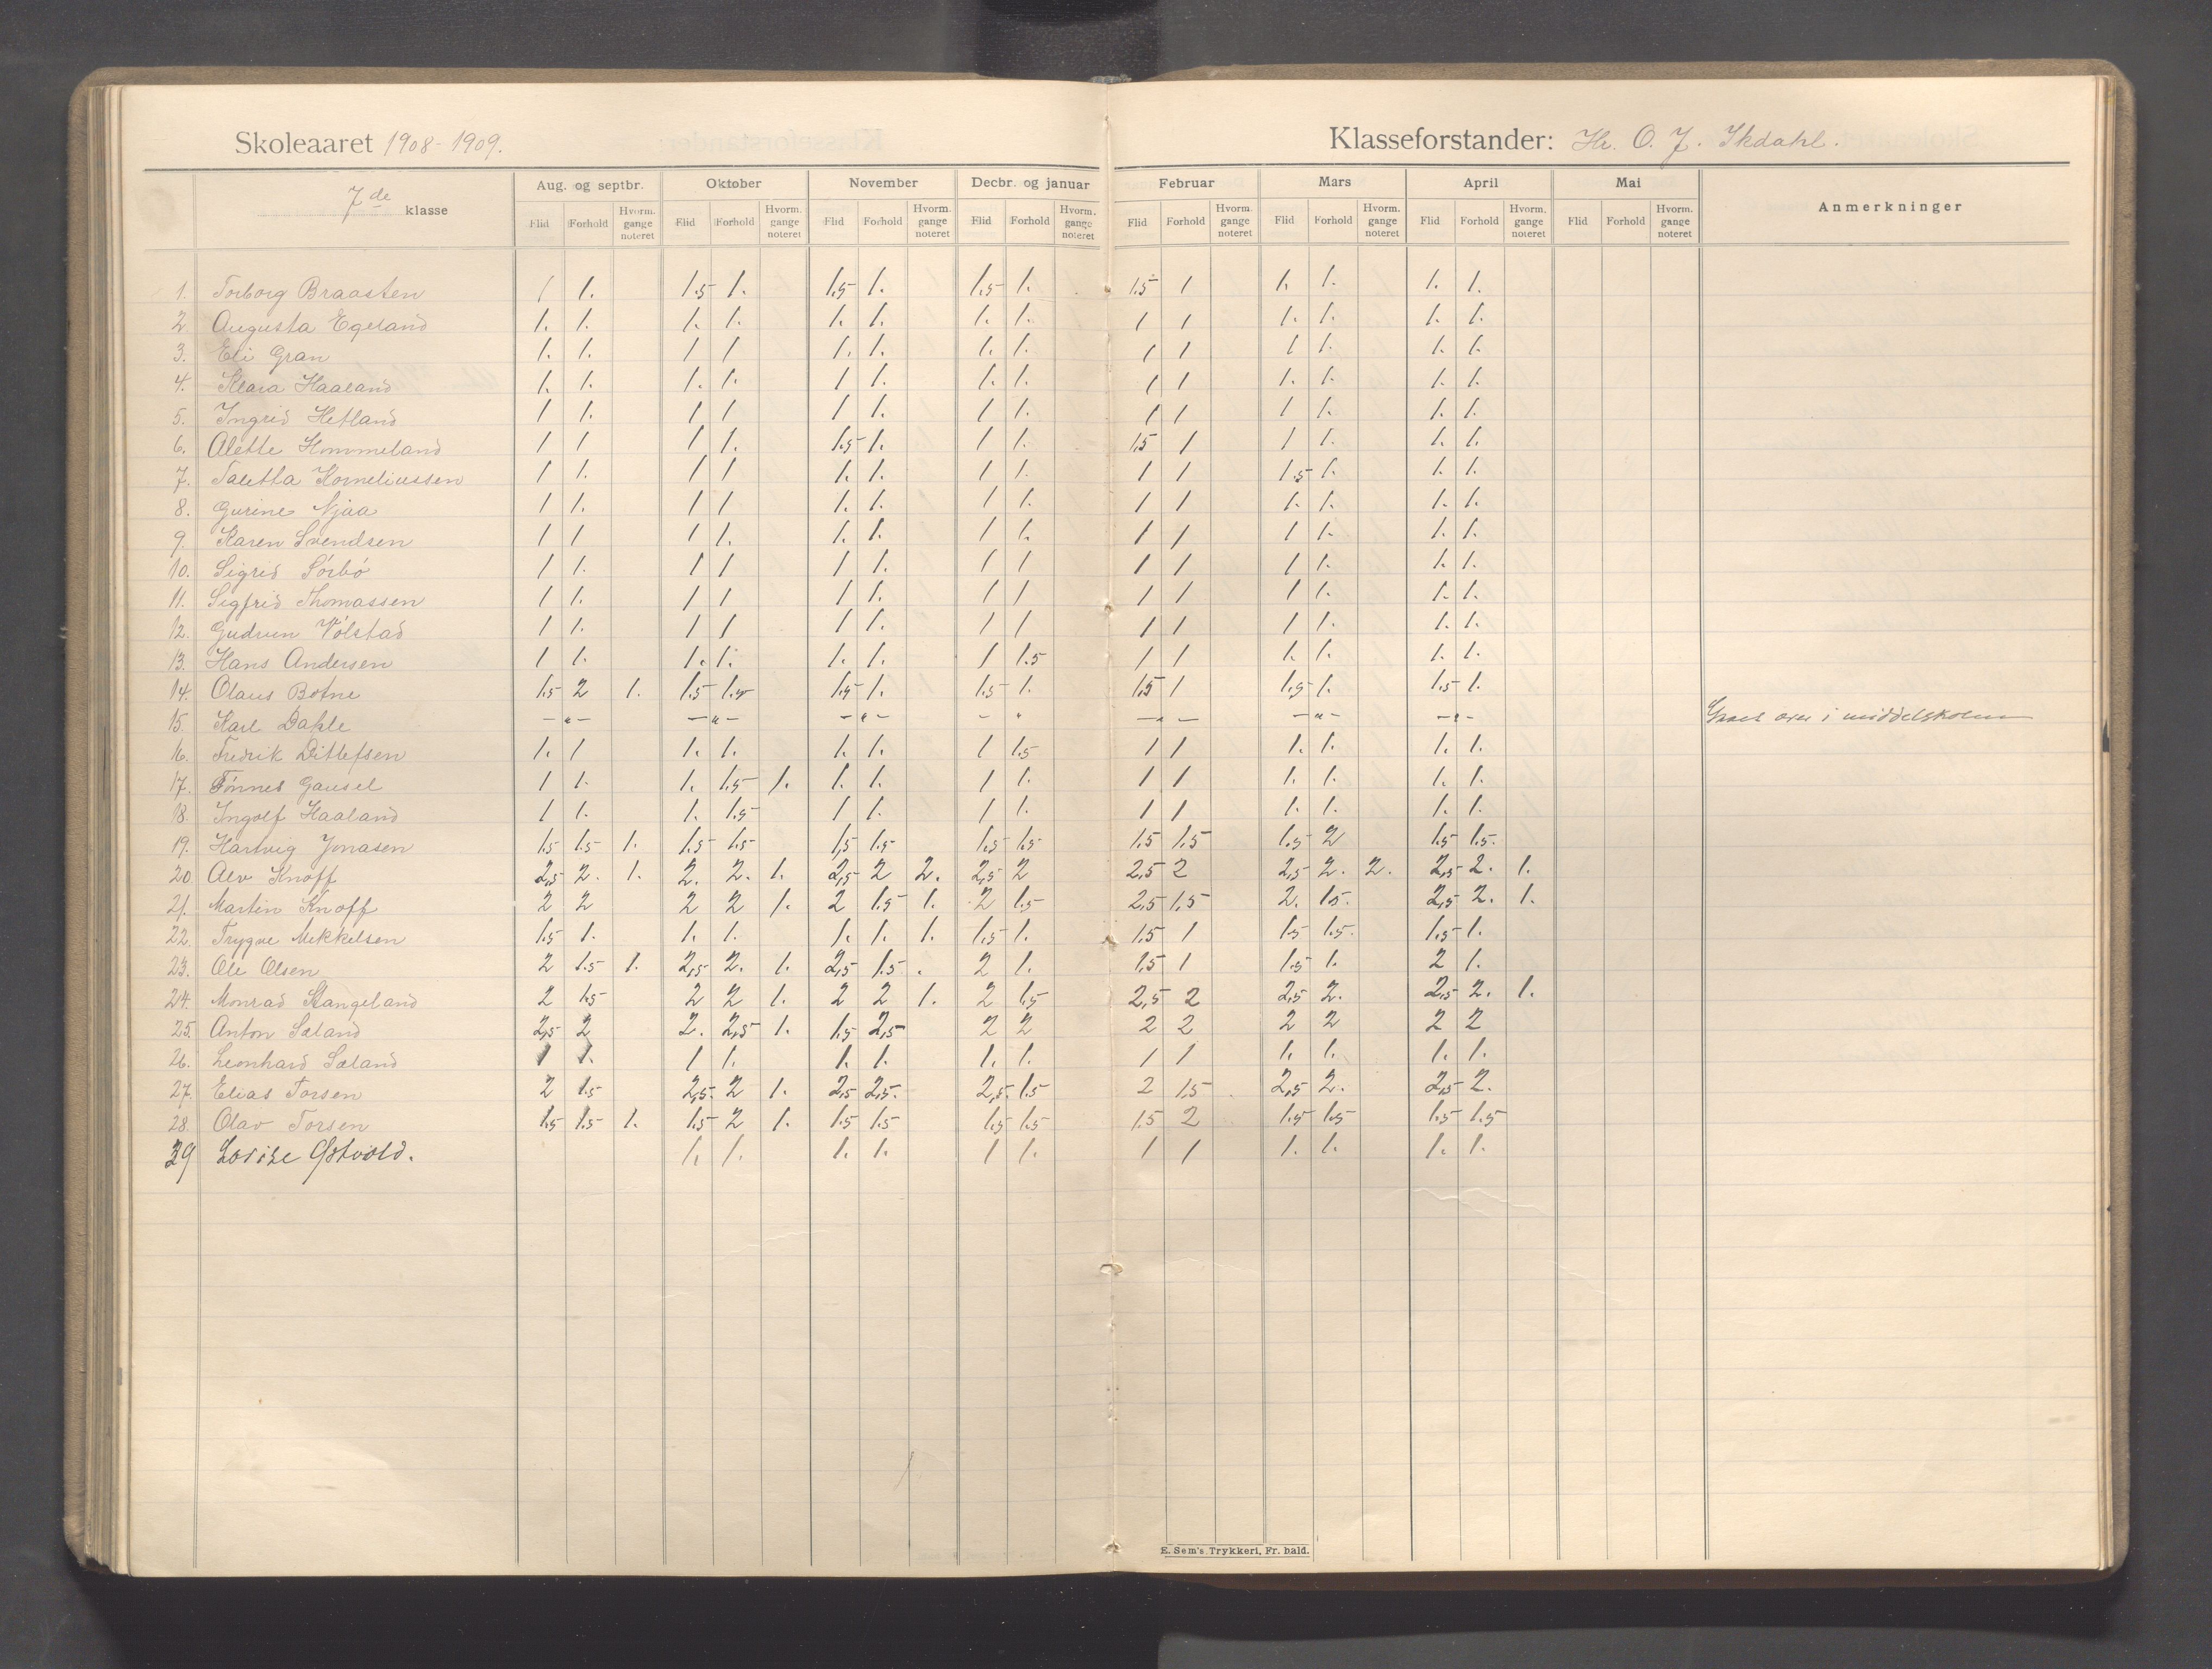 Skoleaaret 1908-1909.
Klasseforstander: Hr. O. J. Ikdahl.
7de klasse
Aug. og septbr. Oktober November Decbr. og januar Februar Mars April Mai Anmerkninger
Flid Forhold Hvorm. gange noteret Flid Forhold Hvorm. gange noteret Flid Forhold Hvorm. gange noteret Flid Forhold Hvorm. gange noteret Flid Forhold Hvorm. gange noteret Flid Forhold Hvorm. gange noteret Flid Forhold Hvorm. gange noteret Flid Forhold Hvorm. gange noteret
1. Torborg Braasten 1 1. 1.5 1. 1.5 1. 1.5 1. 1.5 1 1. 1. 1. 1.
2 Augusta Egeland 1. 1. 1. 1. 1. 1. 1. 1. 1 1 1. 1. 1. 1.
3. Eli Gran 1. 1. 1 1 1. 1. 1. 1. 1 1 1 1. 1. 1.
4. Klara Haaland 1. 1. 1. 1. 1 1. 1. 1. 1 1 1. 1. 1. 1.
5. Ingrid Hetland 1 1. 1 1 1 1. 1 1. 1 1 1 1. 1. 1.
6. Alette Hommeland 1 1 1 1. 1.5 1. 1 1. 1.5 1 1 1. 1. 1.
7. Taletta Korneliussen 1 1. 1 1 1. 1. 1 1. 1 1 1.5 1. 1. 1.
8. Gurine Njaa 1 1. 1 1 1. 1. 1 1. 1 1 1. 1. 1. 1.
9. Karen Svendsen 1 1 1 1. 1. 1. 1 1. 1 1 1 1. 1. 1.
10. Sigrid Sórbó 1 1. 1 1 1 1. 1 1 1 1 1 1. 1. 1.
11. Sigfrid Thomassen 1 1. 1 1 1 1. 1 1 1 1 1 1. 1. 1.
12. Gudrun Vólstad 1 1. 1 1 1 1. 1 1 1 1 1 1. 1. 1.
13. Hans Andersen 1 1. 1. 1. 1. 1. 1 1.5 1 1 1. 1. 1. 1.
14. Olaus Botne 1.5 2 1. 1.5 1.5 1.5 1. 1.5 1. 1.5 1 1.5 1. 1.5 1.
15. Karl Dahle — " — — " — — " — — " — " — — " — — " — over i middelskolen
16. Fredrik Ditlefsen 1. 1 1. 1. 1. 1. 1 1.5 1 1 1. 1. 1. 1.
17. Tónnes Gausel 1 1. 1. 1.5 1. 1. 1. 1 1. 1 1 1. 1. 1. 1.
18. Ingolf Haaland 1 1. 1. 1.5 1 1. 1 1. 1 1 1. 1. 1. 1.
19. Hartvig Jonasen 1.5 1.5 1. 1.5 1.5 1,5 1.5 1.5 1.5 1.5 1.5 1.5 2 1.5 1.5.
20 Alv Knoff 2,5 2. 1. 2. 2. 1. 2,5 2 2. 2,5 2 2,5 2 2,5 2. 2. 2,5 2. 1.
21. Martin Knoff 2 2 2 2 1. 2 1.5 1. 2 1.5 2,5 1,5 2. 1.5. 2,5 2. 1.
22. Trygve Mekkelsen 1.5 1. 1. 1. 1. 1. 1. 1.5 1. 1.5 1 1.5 1.5. 1.5 1.
23. Ole Olsen 2 1.5 1. 2,5 2. 1. 2,5 1.5. . 2 1. 1,5 1 1.5 1. 2 1.
24. Monrad Stangeland 2 1.5 2 2 1. 2 2 1. 2 1.5 2,5 2 2,5 2. 2,5 2. 1.
25. Anton Sæland 2,5 2 2. 2,5 1. 1.5 2,5 2 2 2 2 2 2 2 2
26. Leonhard Sæland 1 1. 1 1. 1. 1. 1. 1. 1 1 1. 1. 1. 1.
27. Elias Torsen 2 1.5 2,5. 2 1. 2,5 2,5. 2,5. 1.5 2 1,5 2,5 2. 2,5 2.
28. Olav Torsen 1.5 1.5 1. 1.5 2 1. 1.5 1.5 1.5 1.5 1.5 2 1.5 1.5 1.5 1.5
29 Lovise Østvold. 1. 1. 1. 1. 1 1. 1 1 1. 1. 1. 1.
E. Sem's Trykkeri, Fr. hald.